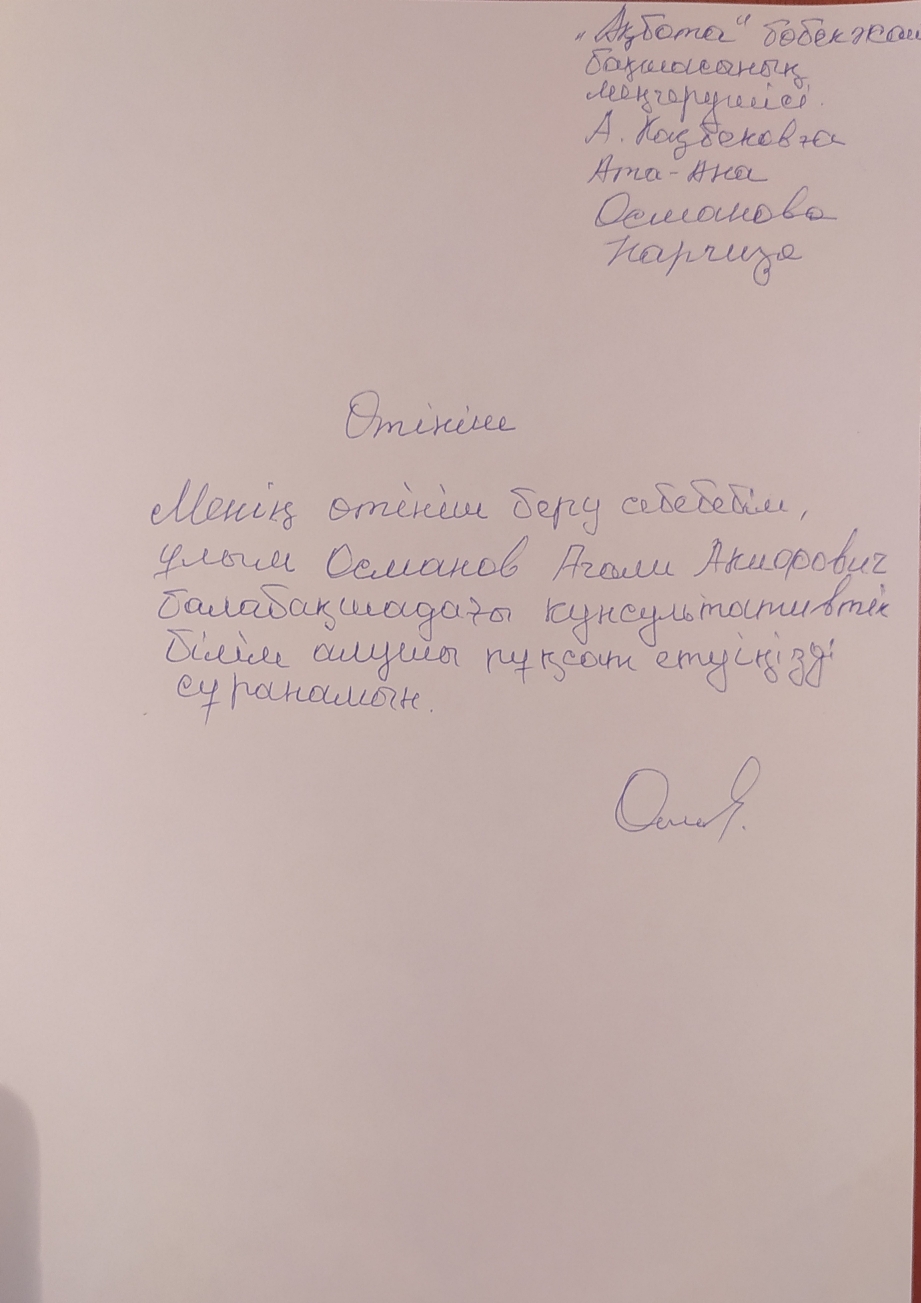 „Ақбота" бөбекжай
бақшасының
меңгерушісі.
А. Казбековта
Ата-Ана
Османова
Наргиза
Өтініш
Менің өтініш беру себебебім,
ұлым Османов Агали Акиорович
балабақшадағы кунсультативтік
білім алушы рұқсат етуіңізді
сұранамын.